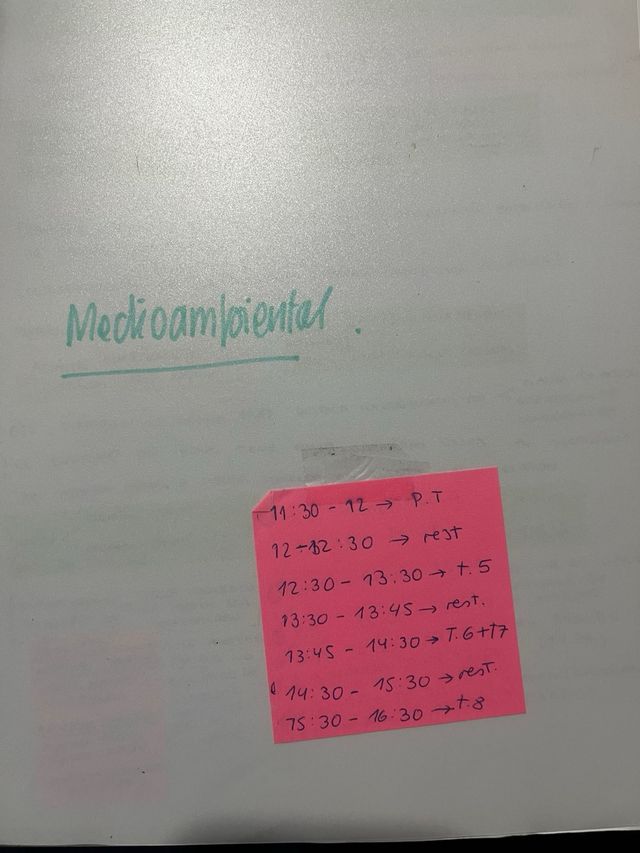 Medioambiental.
11:30 - 12 → P.T
12-12:30 → rest
12:30 - 13:30 → t.5
13:30 - 13:45 → rest.
13:45 - 14:30 → T.6+T7
14:30 - 15:30 → rest.
15:30 - 16:30 → t.8